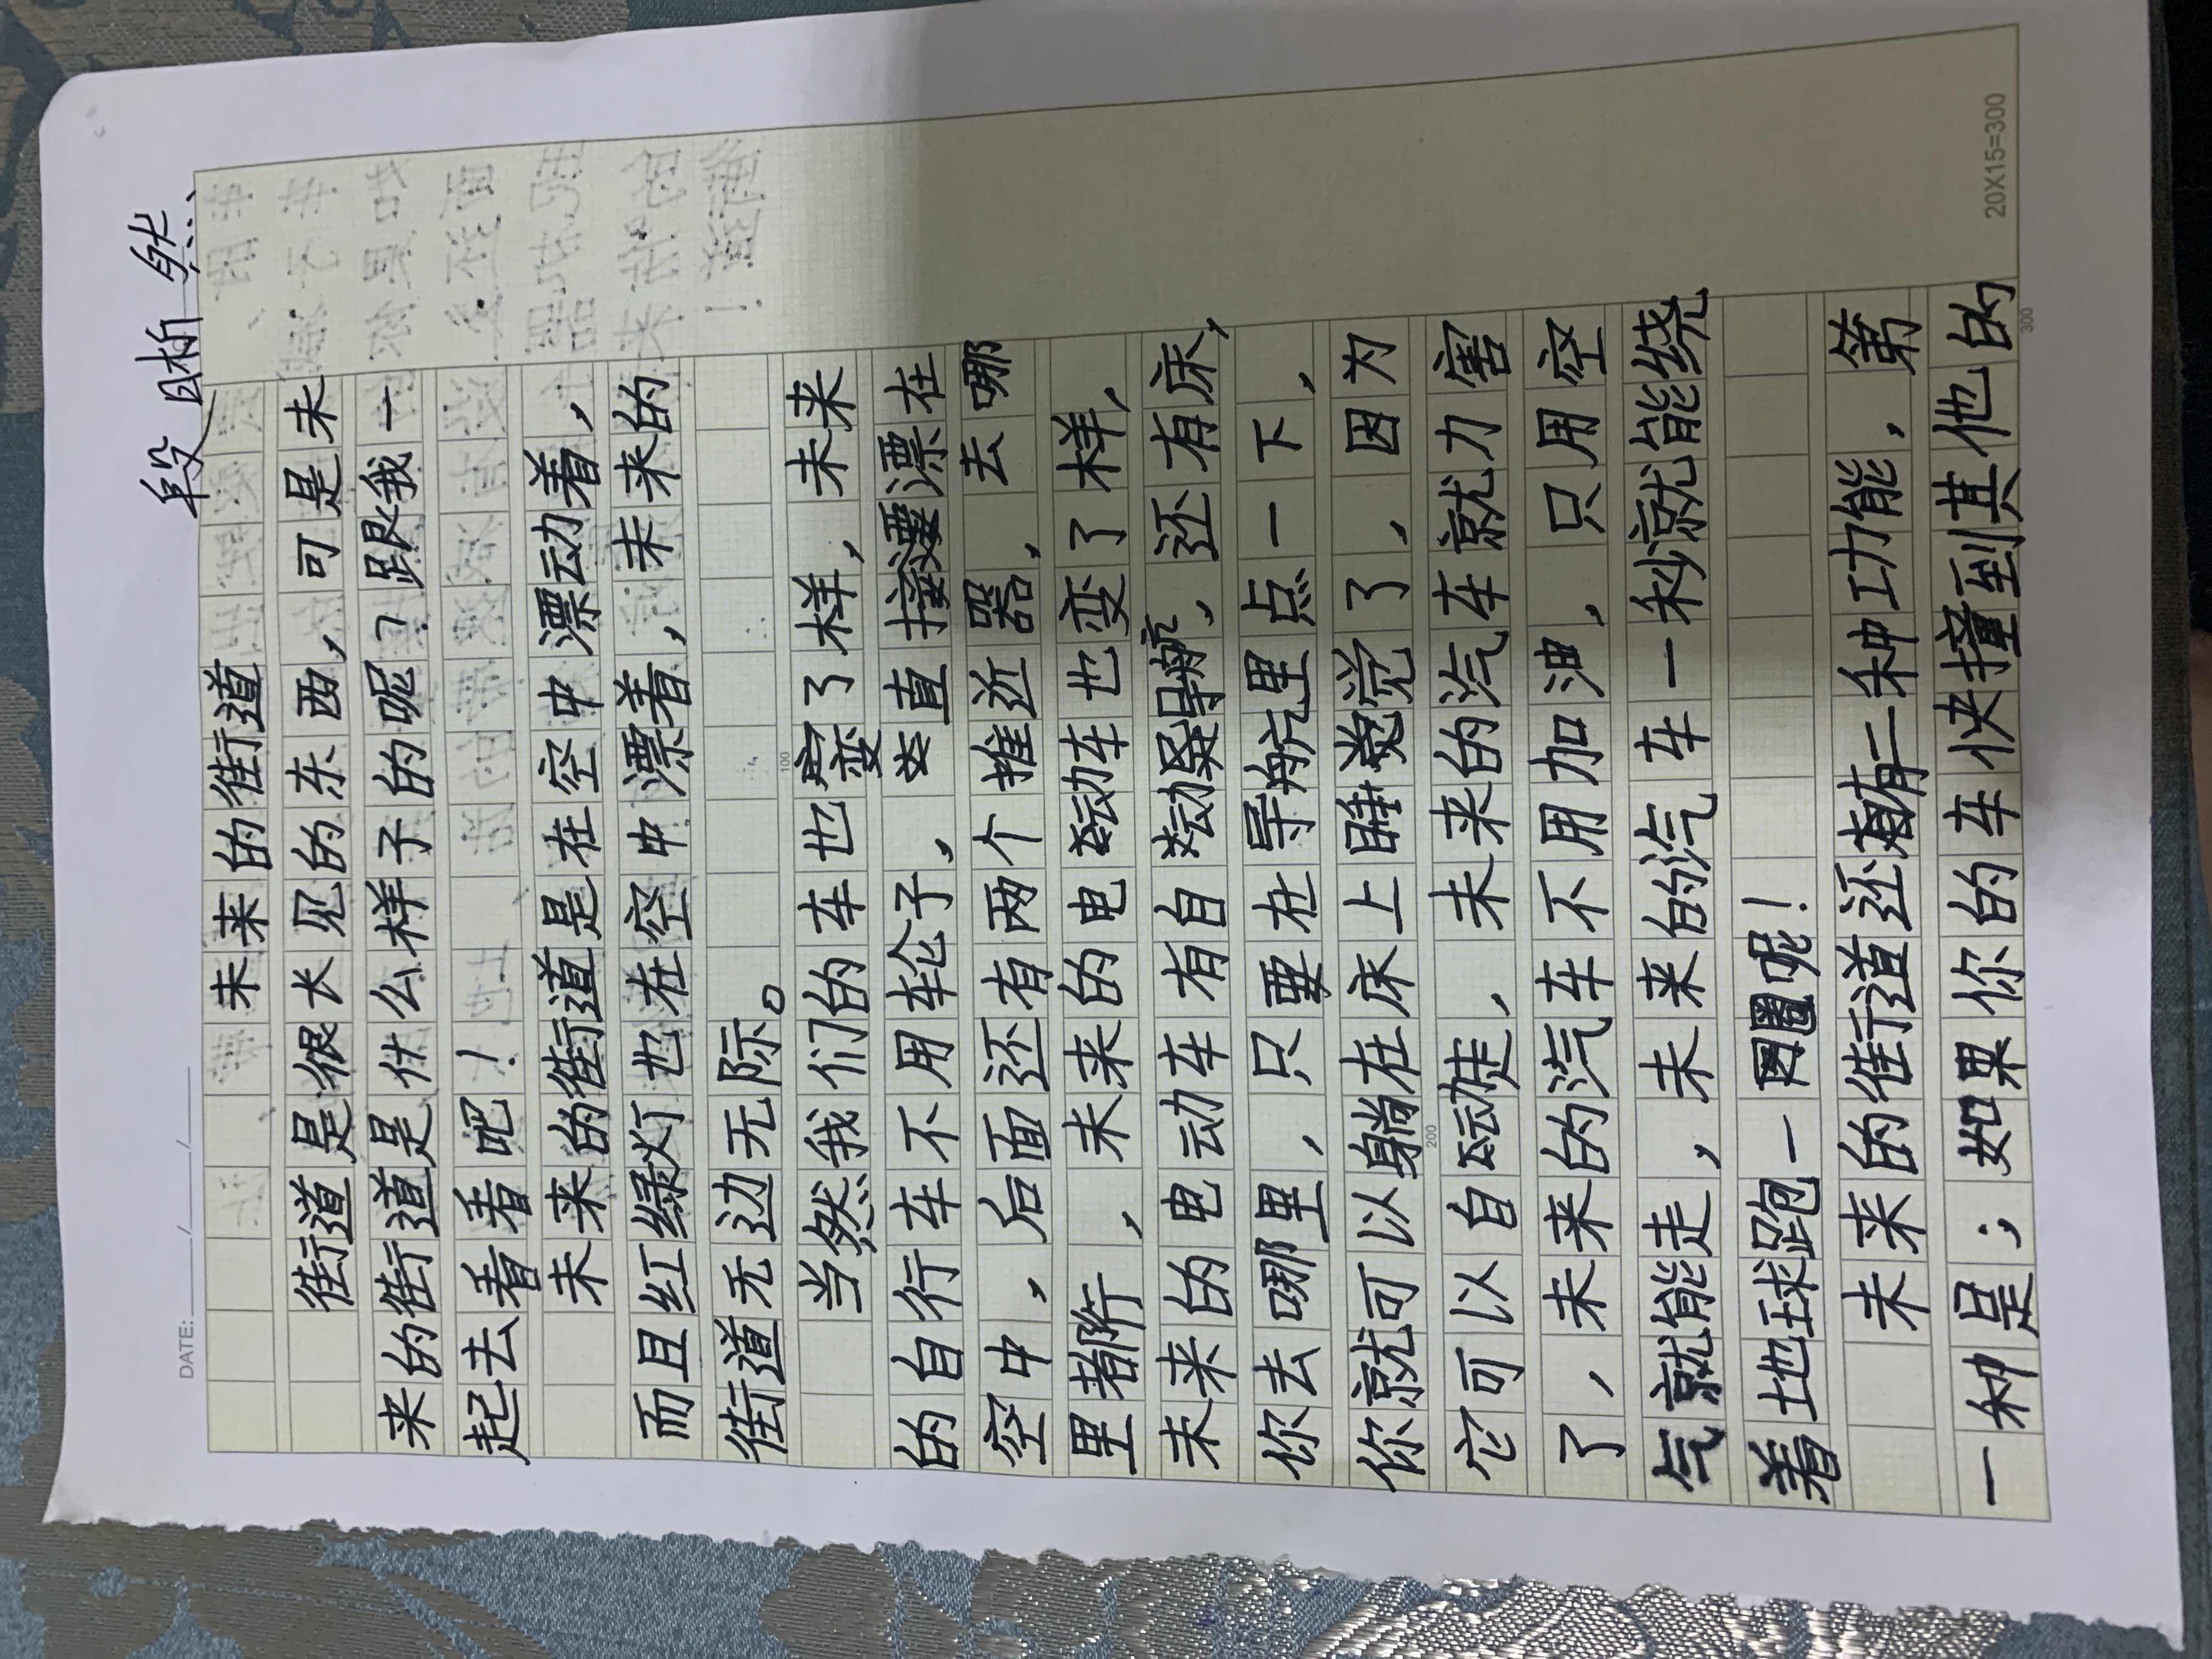 DATE: ____/____/____
段析然
未来的街道
街道是很长见的东西，可是未
来的街道是什么样子的呢？跟我一
起去看看吧！
未来的街道是在空中漂动着，
而且红绿灯也在空中漂着，未来的
街道无边无际。
100
当然我们的车也变了样，未来
的自行车不用轮子，直接漂在
空中，后面还有两个推近器，去哪
里都行，未来的电动车也变了样，
未来的电动车有自动导航，还有床，
你去哪里，只要在导航里点一下，
你就可以躺在床上睡觉了，因为
200
它可以自动走，未来的汽车就力害
了，未来的汽车不用加油，只用空
气就能走，未来的汽车一秒就能绕
着地球跑一圈呢！
未来的街道还有二种功能，第
一种是；如果你的车快撞到其他的
300
20X15=300